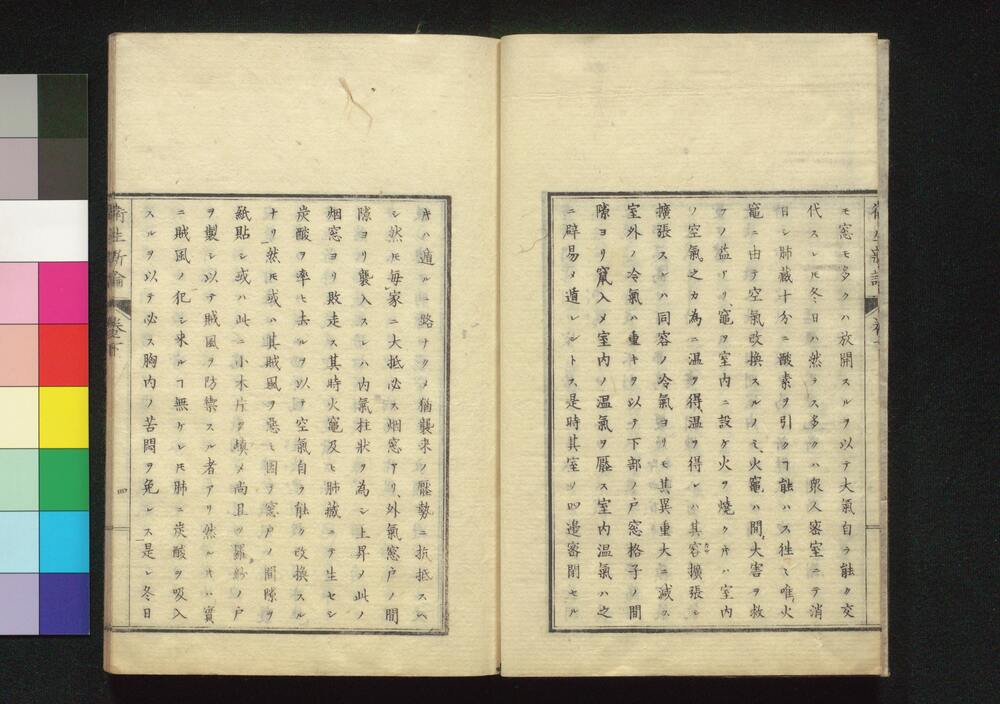 モ窓モ多クハ放開スルヲ以テ大氣自ラ能ク交
代スレ𪜈冬日ハ然ラス多クハ衆人密室ニテ消
日シ肺藏十分ニ酸素ヲ引クヿ能ハス徃々唯火
竈ニ由テ空氣改換スルノミ火竈ハ間大害ヲ救
フノ益アリ竈ヲ室内ニ設ケ火ヲ燒クキハ室内
ノ空氣之カ為ニ温ヲ得温ヲ得レハ其容擴張シ
擴張スレハ同容ノ冷氣ヨリモ其異重大ニ減ス
室外ノ冷氣ハ重キヲ以テ下部ノ戸窓格子ノ間
隙ヨリ竄入メ室内ノ温氣ヲ壓ス室内温氣ハ之
ニ辟易メ遁レントス是時其室ノ四邉密閉セル
キハ遁ルニ路ナクメ猶襲来ノ壓勢ニ抗抵スヘ
シ然𪜈毎家ニ大抵必ス烟窓アリ外氣窓戸ノ間
隙ヨリ襲入スレハ内氣柱状ヲ為シ上昇メ此ノ
烟窓ヨリ敗走ス其時火竈及ヒ肺藏ニテ生セシ
炭酸ヲ率ヒ去ルヲ以テ空氣自ラ能ク改換スル
ナリ然𪜈或ハ其賊風ヲ惡ミ因テ窓戸ノ間隙ヲ
紙貼シ或ハ此ニ小木片ヲ塡メ尚且ツ羅紗ノ戸
ヲ製シ以テ賊風ヲ防禦スル者アリ然ルキハ實
ニ賊風ノ犯シ来ルヿ無ケレ𪜈肺ニ炭酸ヲ吸入
スルヲ以テ必ス胸内ノ苦悶ヲ免レス是レ冬日
衛生新論
卷下
四